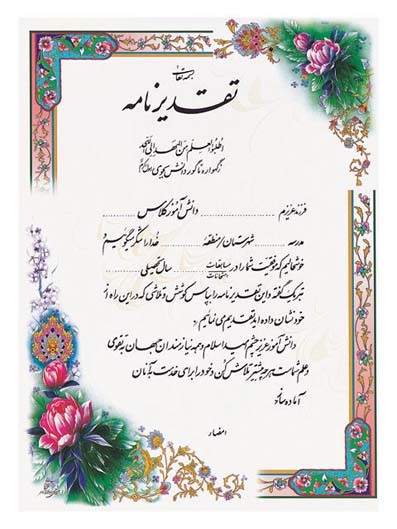 بسمه تعالی
تقدیرنامه
اطلبوا العلم من المهد الی اللحد
زگهواره تا گور دانش بجوی
فرزند عزیزم .......... دانش آموز کلاس ..........
مدرسه .......... شهرستان / منطقه .......... خدا را شکر میگوئیم و
خوشحالیم که موفقیت شما را در مسابقات امتحانات سال تحصیلی ..........
تبریک گفته و این تقدیرنامه را بپاس کوشش و تلاشی که در این راه از
خود نشان داده اید تقدیم می نمائیم.
دانش آموز عزیز چشم امید اسلام و همه نیازمندان جهان به تقوی
و علم شماست هر چه بیشتر تلاش کن و خود را برای خدمت به آنان
آماده ساز.
امضاء